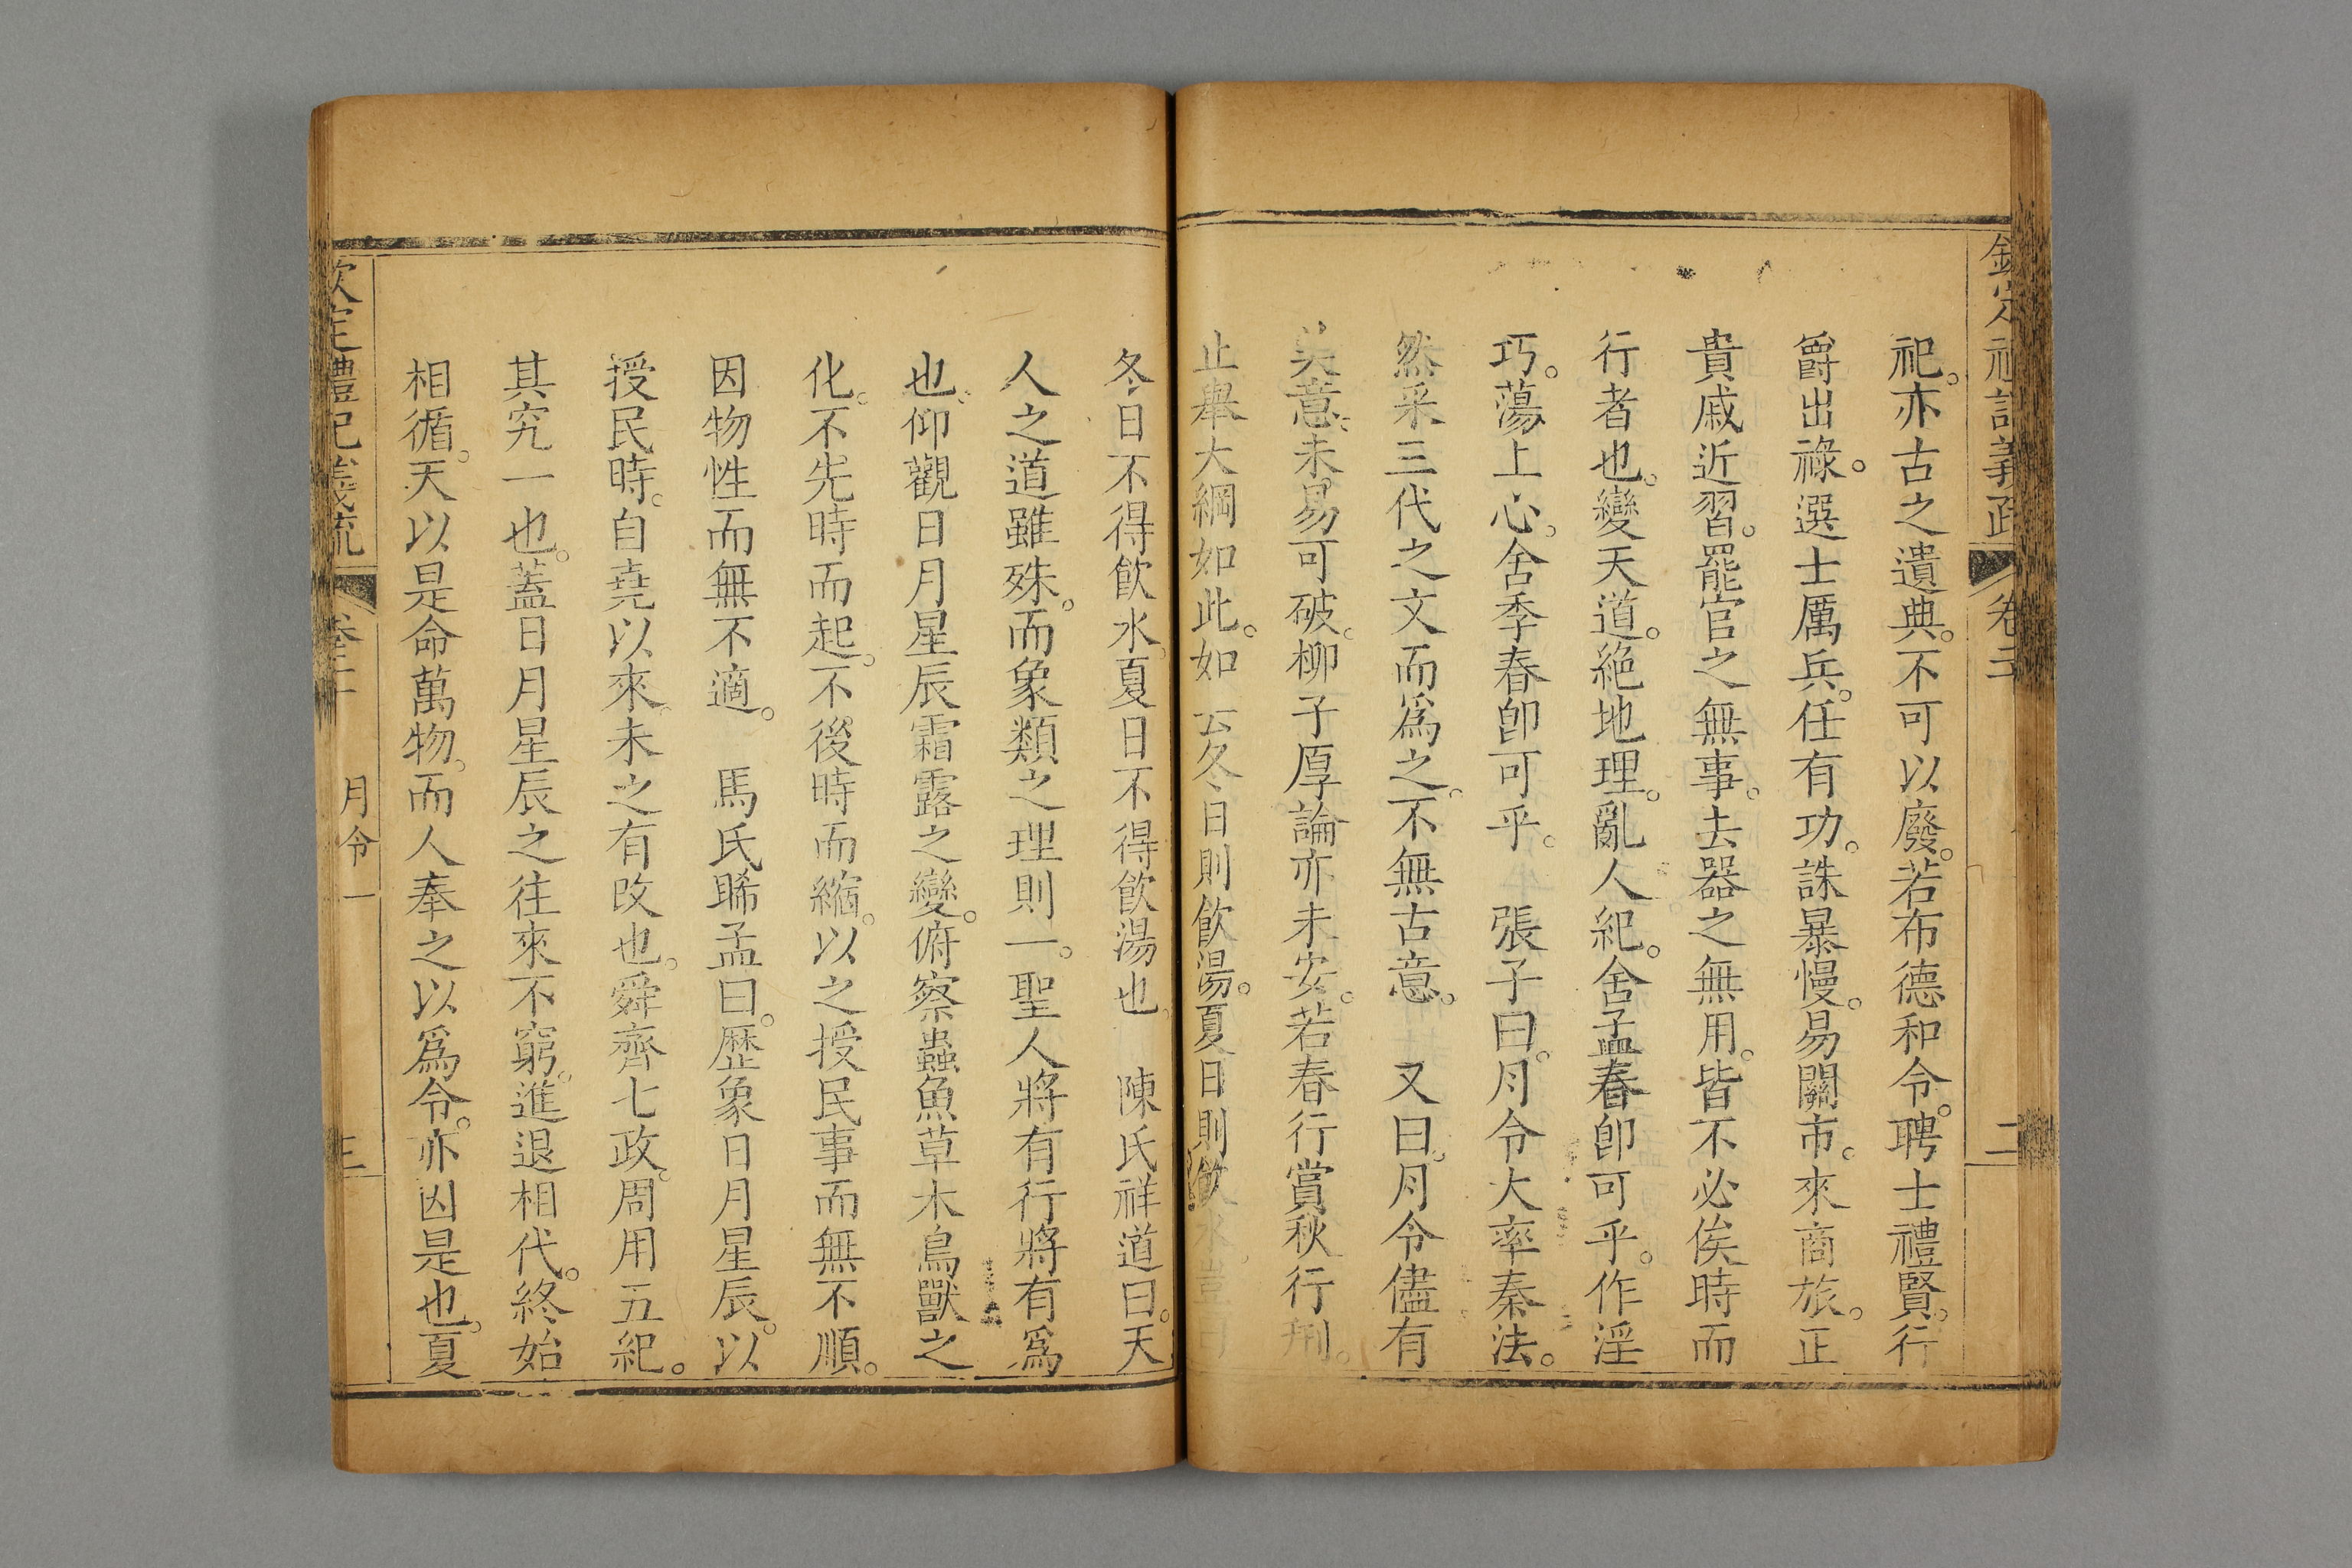 欽定禮記義疏 卷二 二
祀。亦古之遺典。不可以廢。若布德和令。聘士禮賢。行
爵出祿。選士厲兵。任有功。誅暴慢。易關市。來商旅。正
貴戚近習。罷官之無事。去器之無用。皆不必俟時而
行者也。變天道。絕地理。亂人紀。舍孟春卽可乎。作淫
巧。蕩上心。舍季春卽可乎。 張子曰。月令大率秦法。
然采三代之文而爲之。不無古意。 又曰。月令儘有
美意。未易可破。柳子厚論亦未安。若春行賞秋行刑。
止舉大綱如此。如云冬日則飮湯。夏日則飮水。豈可
冬日不得飮水。夏日不得飮湯也。 陳氏祥道曰。天
人之道雖殊。而象類之理則一。聖人將有行將有爲
也。仰觀日月星辰霜露之變。俯察蟲魚草木鳥獸之
化。不先時而起。不後時而縮。以之授民事而無不順。
因物性而無不適。 馬氏睎孟曰。歷象日月星辰。以
授民時。自堯以來。未之有改也。舜齊七政。周用五紀。
其究一也。蓋日月星辰之往來不窮。進退相代。終始
相循。天以是命萬物。而人奉之以爲令。亦囟是也。夏
欽定禮記義疏 卷二十 月令一 三